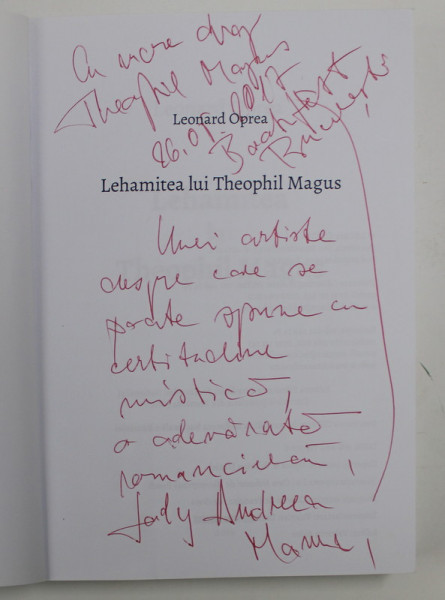 Cu mare drag
Theophil Magus
26.05.2017
Bookfest
București
Leonard Oprea
Lehamitea lui Theophil Magus
Unei artiste
despre care se
poate spune cu
certitudine
mistică,
o adevărată
romancieră,
Lady Andreea